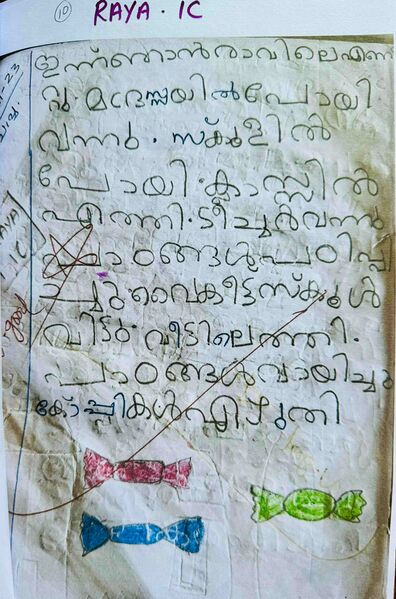 10 RAYA. 1C
ഇന്ന്ഞാൻരാവിലെഎണി
റ്റു മദ്രസ്സയിൽപോയി
വന്നു. സ്കൂളിൽ
പോയി.ക്ലാസ്സിൽ
എത്തി.ടീച്ചർവന്നു
പാഠങ്ങൾപഠിപ്പി
ച്ചു.വൈകീട്ട്സ്കൂൾ
വിട്ടു. വീട്ടിലെത്തി.
പാഠങ്ങൾവായിച്ചു
കോപ്പികൾഎഴുതി
good